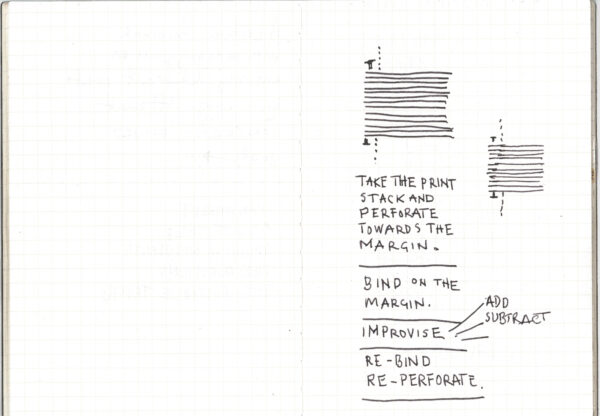 TAKE THE PRINT
STACK AND
PERFORATE
TOWARDS THE
MARGIN.
BIND ON THE
MARGIN.
IMPROVISE
ADD
SUBTRACT
RE-BIND
RE-PERFORATE.